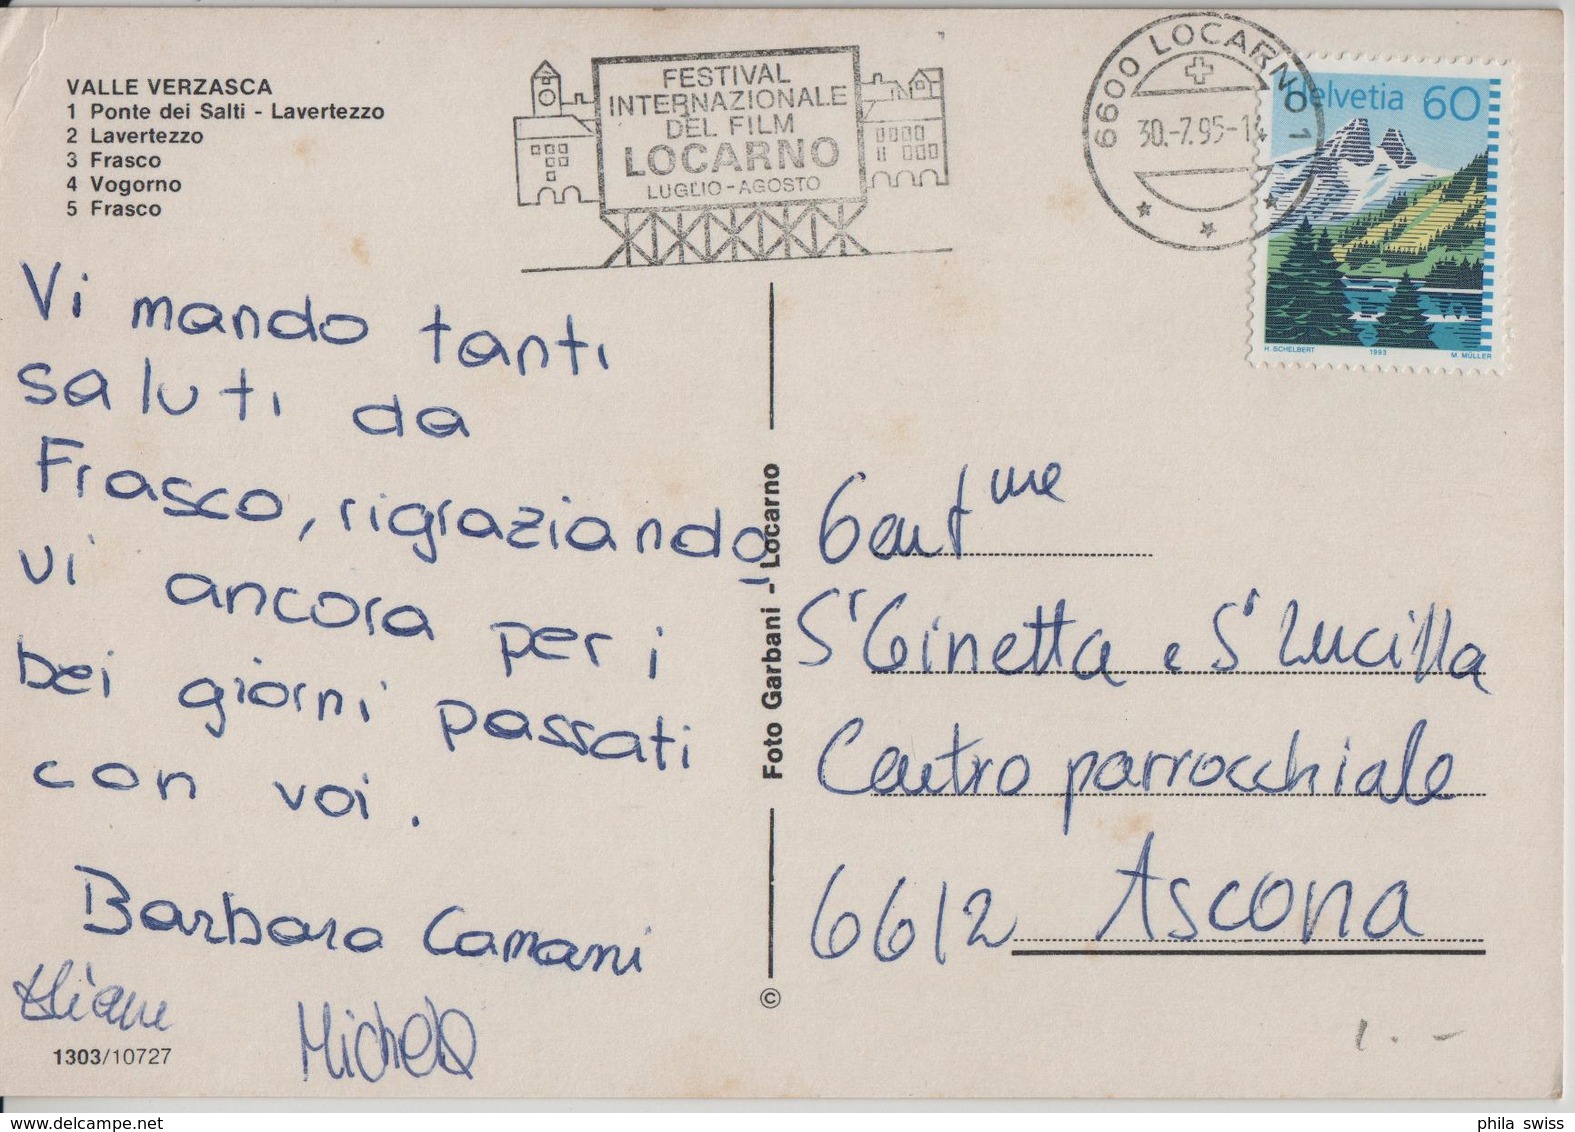 VALLE VERZASCA
1 Ponte dei Salti - Lavertezzo
2 Lavertezzo
3 Frasco
4 Vogorno
5 Frasco
FESTIVAL
INTERNAZIONALE
DEL FILM
LOCARNO
LUGLIO-AGOSTO
6600 LOCARNO 1
30.-7.95-14
Helvetia 60
H. SCHELBERT 1993 M. MÜLLER
Vi mando tanti
saluti da
Frasco, rigraziando
vi ancora per i
bei giorni passati
con voi.
Barbara Camani
Michela
1303/10727
Foto Garbani - Locarno
©
Gent me
Sr Ginetta e Sr Lucilla
Centro parrocchiale
6612 Ascona
1.-
phila swiss